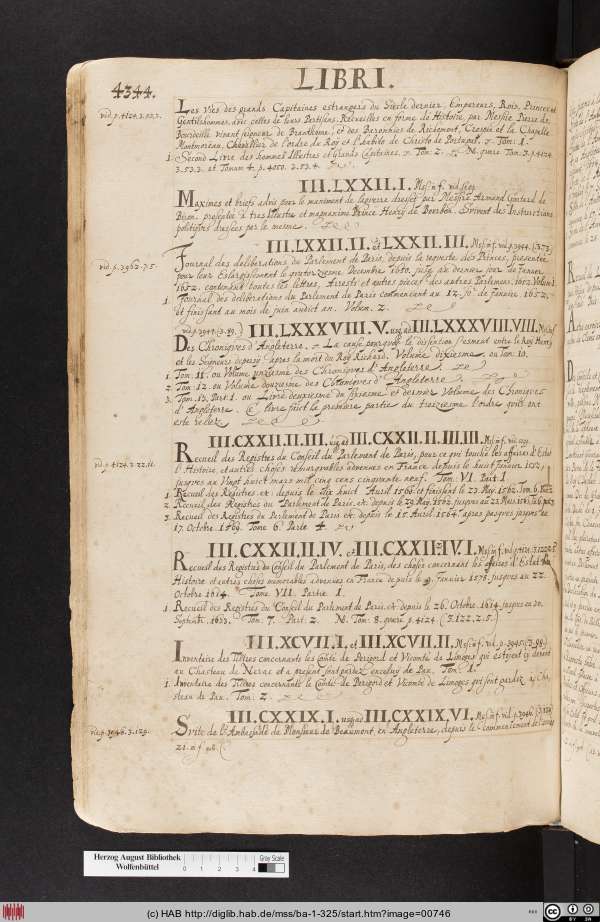 LIBRI.
4344.
Les vies des grands Capitaines estrangers du Siecle dernier, Empereurs, Rois, Princes et
vid. p. 4124. 3.53.3.
Gentilshommes, avec celles de leurs Partisans. Recueillies en forme de Histoire, par Messire Pierre de
Bourdeille vivant seigneur de Branthome, et des Baronnies de Richemont, Crespie et la Chapelle
Montmoreau, Chevallier de l'ordre du Roy et l'habito de Christo de Portugal. Tom. 1.
1. Second Livre des hommes Illustres et Grands Capitaines. Tom. 2. N. quære Tom. 3. p. 4124
3.53.3. et Tomum 4. p. 4050. 3.53.4.
III.LXXII.I. Mss. in f. vid. 3109.
Maximes et briefs advis pour le maniment de la guerre dressez par Messire Armand Gontard de
Biron. presentée à tres Illustre et magnanime Prince Henry de Bourbon. Suivent des Instructions
politiques dressées par le mesme.
III.LXXII.II. et LXXII.III. Mss. in f. vid. p. 3944. (3.73.
vid. p. 3962. 75.
Journal des deliberations du Parlement de Paris, depuis la requeste des Princes, presentée
pour leur Eslargissement le quatorziesme Decembre 1650. jusq. au dernier jour de Janvier
1652. contenant toutes les lettres, Arrests et autres pieces des autres Parlemens. 1652. Volum. 1.
1. Journal des deliberations du Parlement de Paris commencant au 12. jo. de Janvier 1652.
et finissant au mois de juin audict an. Volum. 2.
vid. p. 3944. (3.89.) III.LXXXVIII.V. usq. ad III.LXXXVIII.VIII. Mss. in f.
Des Chroniques d'Angleterre. La cause pourquoy la disention s'esmeut entre le Roy Henry
et les Seigneurs depuis apres la mort du Roy Richard. Volume dixiesme. ou Tom. 10.
1. Tom. 11. ou Volume unziesme des Chroniques d'Angleterre.
2. Tom. 12. ou Volume douziesme des Chroniques d'Angleterre.
3. Tom. 13. Part. 1. ou Livre deuxiesme du sixiesme et dernier Volume des Chroniques
d'Angleterre. Ce livre faict la premiere partie du treiziesme l'ordre qu'il ont
esté reliez.
III.CXXII.II.III. usq. ad III.CXXII.II.III.III. Mss. in f.
vid. p. 4124. 3.122.11.
Recueil des Registres du Conseil du Parlement de Paris, pour ce qui touche les affaires d'Estat
l'Histoire, et autres choses remarquables advenues en France depuis le huict Janvier 1552.
jusques au Vingt huict mars mil cinq cens cinquante neuf. Tom. VI. Part. 1.
1. Recueil des Registres et. depuis le dix huict Avril 1560. et finissant le 23. May. 1562. Tom. 6. Part. 2.
2. Recueil des Registres du Parlement de Paris. et. depuis le 29. May. 1562. jusques au 22. Mars 1563. To. 6. p. 3.
3. Recueil des Registres du Parlement de Paris. et. depuis le 15. Avril 1564. apres pasques jusques au
17. Octobre 1569. Tome 6. Partie 4.
III.CXXII.II.IV. et III.CXXII.IV.I. Mss. in f. vid. p. 4124. 3.122.2.5.
Recueil des Registres du Conseil du Parlement de Paris, des choses concernant les affaires d'Estat
Histoire et autres choses memorables advenues en France depuis le 9. Janvier 1578. jusques au 22.
Octobre 1614. Tome VII. Partie 1.
1. Recueil des Registres du Conseil du Parlement de Paris. et. depuis le 26. Octobre. 1614. jusques en 20.
Septemb. 1633. Tom. 7. Part. 2. NB. Tom. 8. quære p. 4124. (3.122.2.5.)
III.XCVII.I. et III.XCVII.II. Mss. in f. vid. p. 3945. (3.98.)
Inventaire des Tiltres concernants les Comté de Perigord et Vicomté de Limoges qui estoyent cy devant
au Chasteau de Nerac et a present sont gardez en celuy de Pau. Tom. 1.
1. Inventaire des Tiltres concernants le Comté de Perigord et Vicomté de Limoges qui sont gardez à Cha-
steau de Pau. Tom. 2.
III.CXXIX.I. usq. ad III.CXXIX.VI. Mss. in f. vid. p. 3946. (3.129.
vid. p. 3946. 3.129.
Suite de l'Ambassade de Monsieur de Beaumont, en Angleterre, depuis le commencement de l'année
Herzog August Bibliothek
Wolfenbüttel
0 1 2 3 4
Gray Scale
(c) HAB http://diglib.hab.de/mss/ba-1-325/start.htm?image=00746
BY SA